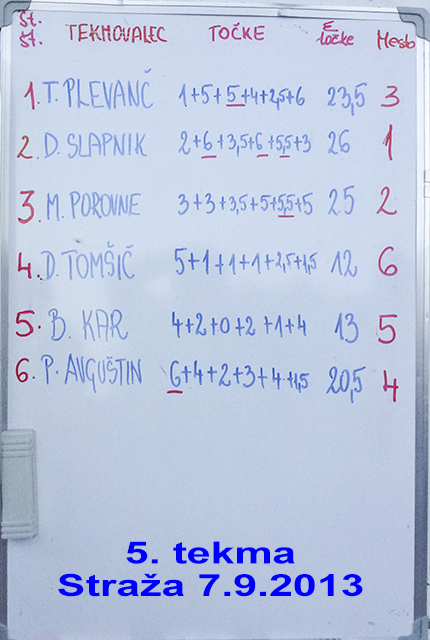 Št. Št. TEKMOVALEC TOČKE Σ točke Mesto
1. T. PLEVANČ 1+5+5+4+2,5+6 23,5 3
2. D. SLAPNIK 2+6+3,5+6+5,5+3 26 1
3. M. POROVNE 3+3+3,5+5+5,5+5 25 2
4. D. TOMŠIČ 5+1+1+1+2,5+1,5 12 6
5. B. KAR 4+2+0+2+1+4 13 5
6. P. AVGUŠTIN 6+4+2+3+4+1,5 20,5 4
5. tekma
Straža 7.9.2013